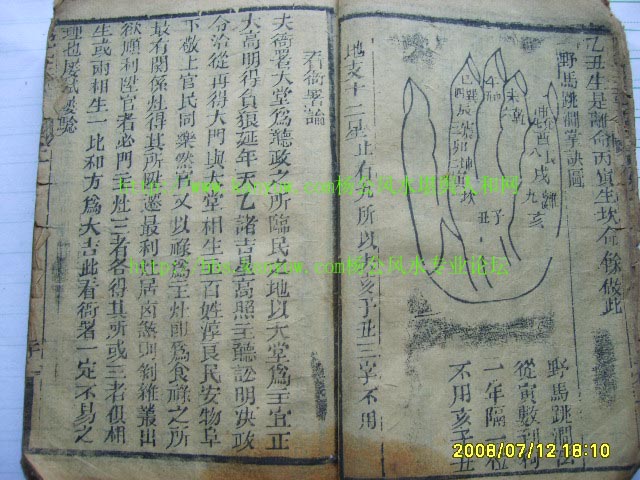 乙丑生是離命丙寅生坎命餘倣此
野馬跳澗掌訣圖
野馬跳澗法
從寅數到狗
一年隔一位
不用亥子丑
地支十二皇止有九所以亥子丑三字不用
看衙署論
夫衙署大堂為聽政之所臨民之地以大堂為主宜正
大高明得負狼延年天乙諸吉星高照主聽訟明決政
令治從再得大門與大堂相生主百姓淳良民安物阜
下敬上官民同樂然官又以祿為主灶能為食祿之所
最有關係灶得其所陞遷最利灶居凶煞則剝雜叢出
欲順利陞官者必門主灶三者各得其所或三者俱相
生或兩相生一比和方為大吉此看衙署一定不易之
理也屢試屢驗
www.kanyew.com杨公风水堪舆人和网
http://bbs.kanyew.com杨公风水专业论坛
2008/07/12 18:10